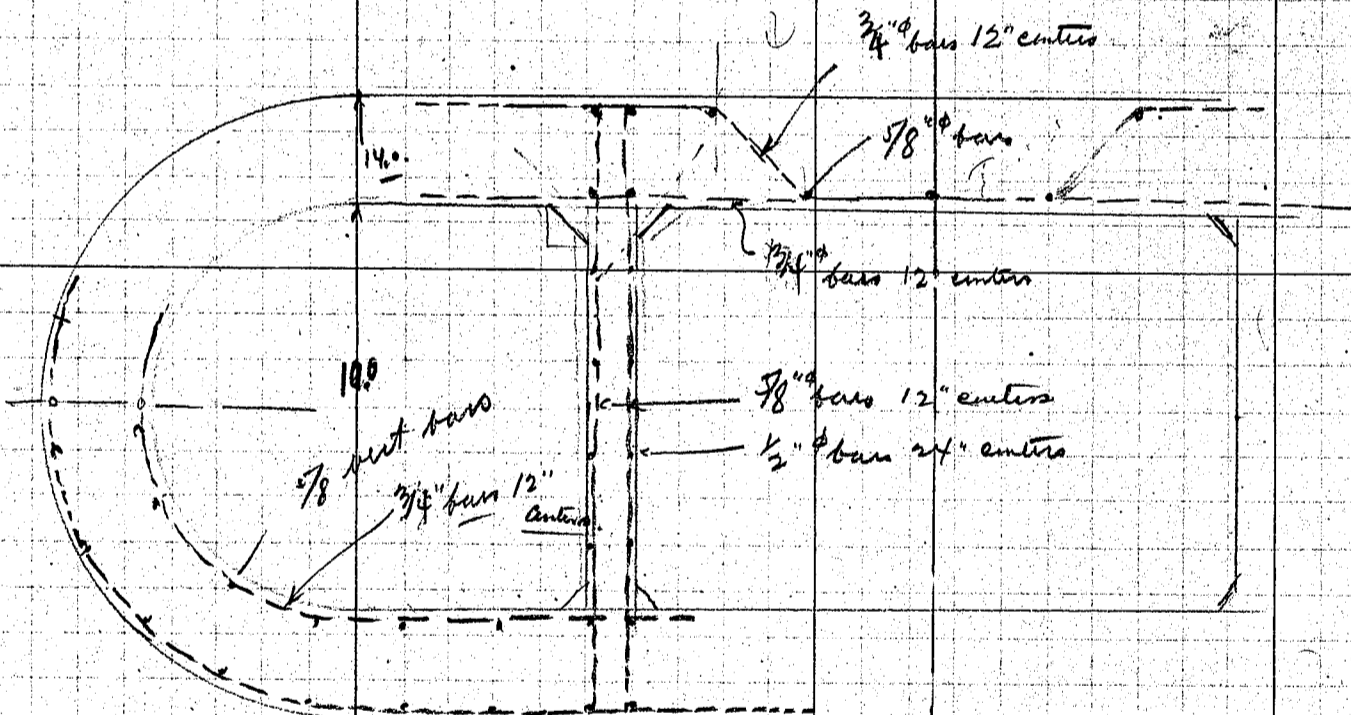 3/4"φ bars 12" centers
5/8"φ bars
14.0.
3/4"φ bars 12 centers
10.0
5/8"φ bars 12" centers
1/2"φ bars 24" centers
5/8 vert bars
3/4" bars 12"
centers.